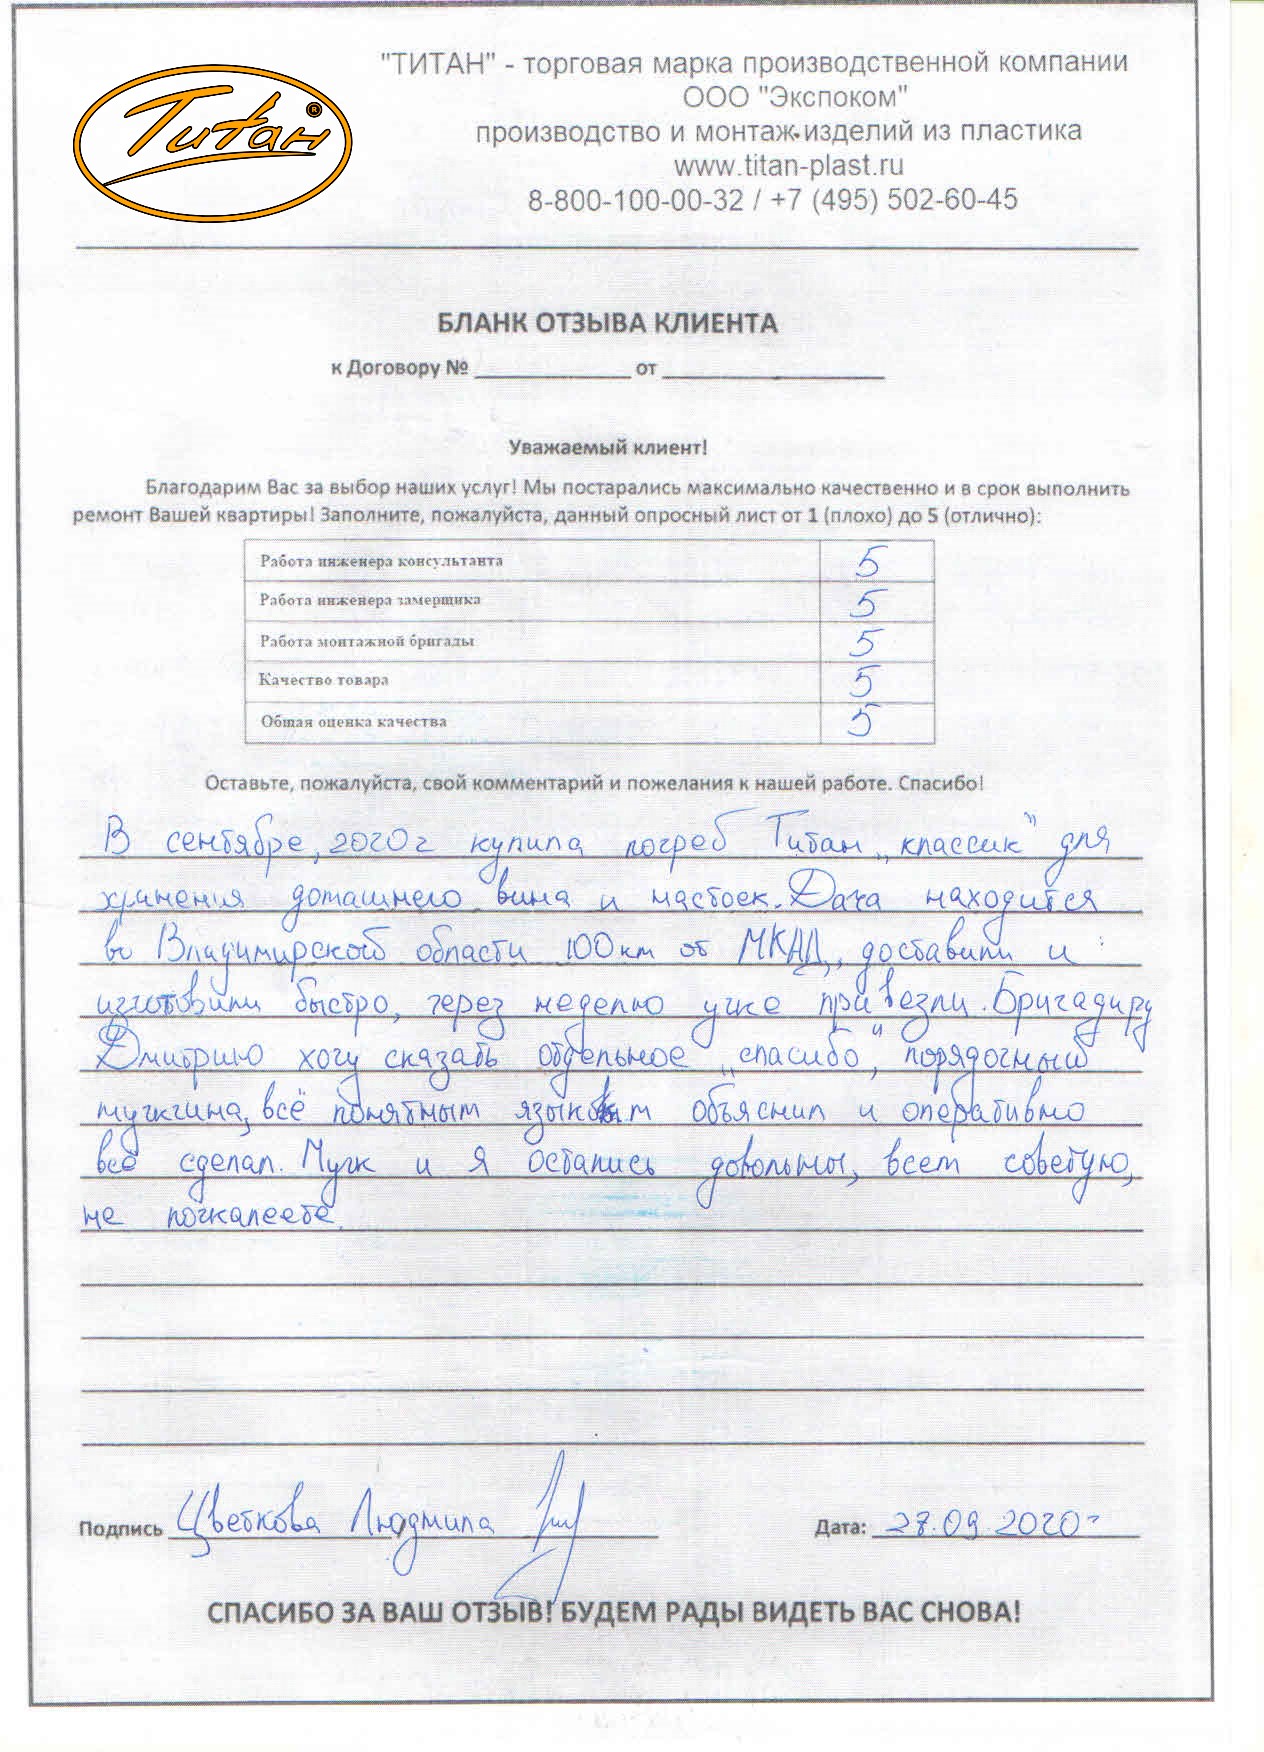 Титан ®
"ТИТАН" - торговая марка производственной компании
ООО "Экспоком"
производство и монтаж изделий из пластика
www.titan-plast.ru
8-800-100-00-32 / +7 (495) 502-60-45
БЛАНК ОТЗЫВА КЛИЕНТА
к Договору № ______________ от ____________________
Уважаемый клиент!
Благодарим Вас за выбор наших услуг! Мы постарались максимально качественно и в срок выполнить
ремонт Вашей квартиры! Заполните, пожалуйста, данный опросный лист от 1 (плохо) до 5 (отлично):
Работа инженера консультанта 5
Работа инженера замерщика 5
Работа монтажной бригады 5
Качество товара 5
Общая оценка качества 5
Оставьте, пожалуйста, свой комментарий и пожелания к нашей работе. Спасибо!
В сентябре, 2020 г купила погреб Титан „классик" для
хранения домашнего вина и настоек. Дача находится
во Владимирской области 100 км от МКАД, доставили и
изготовили быстро, через неделю уже привезли. Бригадиру
Дмитрию хочу сказать отдельное „спасибо", порядочный
мужчина, всё понятным языком объяснил и оперативно
всё сделал. Муж и я остались довольны, всем советую,
не пожалеете.
Подпись Цветкова Людмила Дата: 27.09.2020г
СПАСИБО ЗА ВАШ ОТЗЫВ! БУДЕМ РАДЫ ВИДЕТЬ ВАС СНОВА!